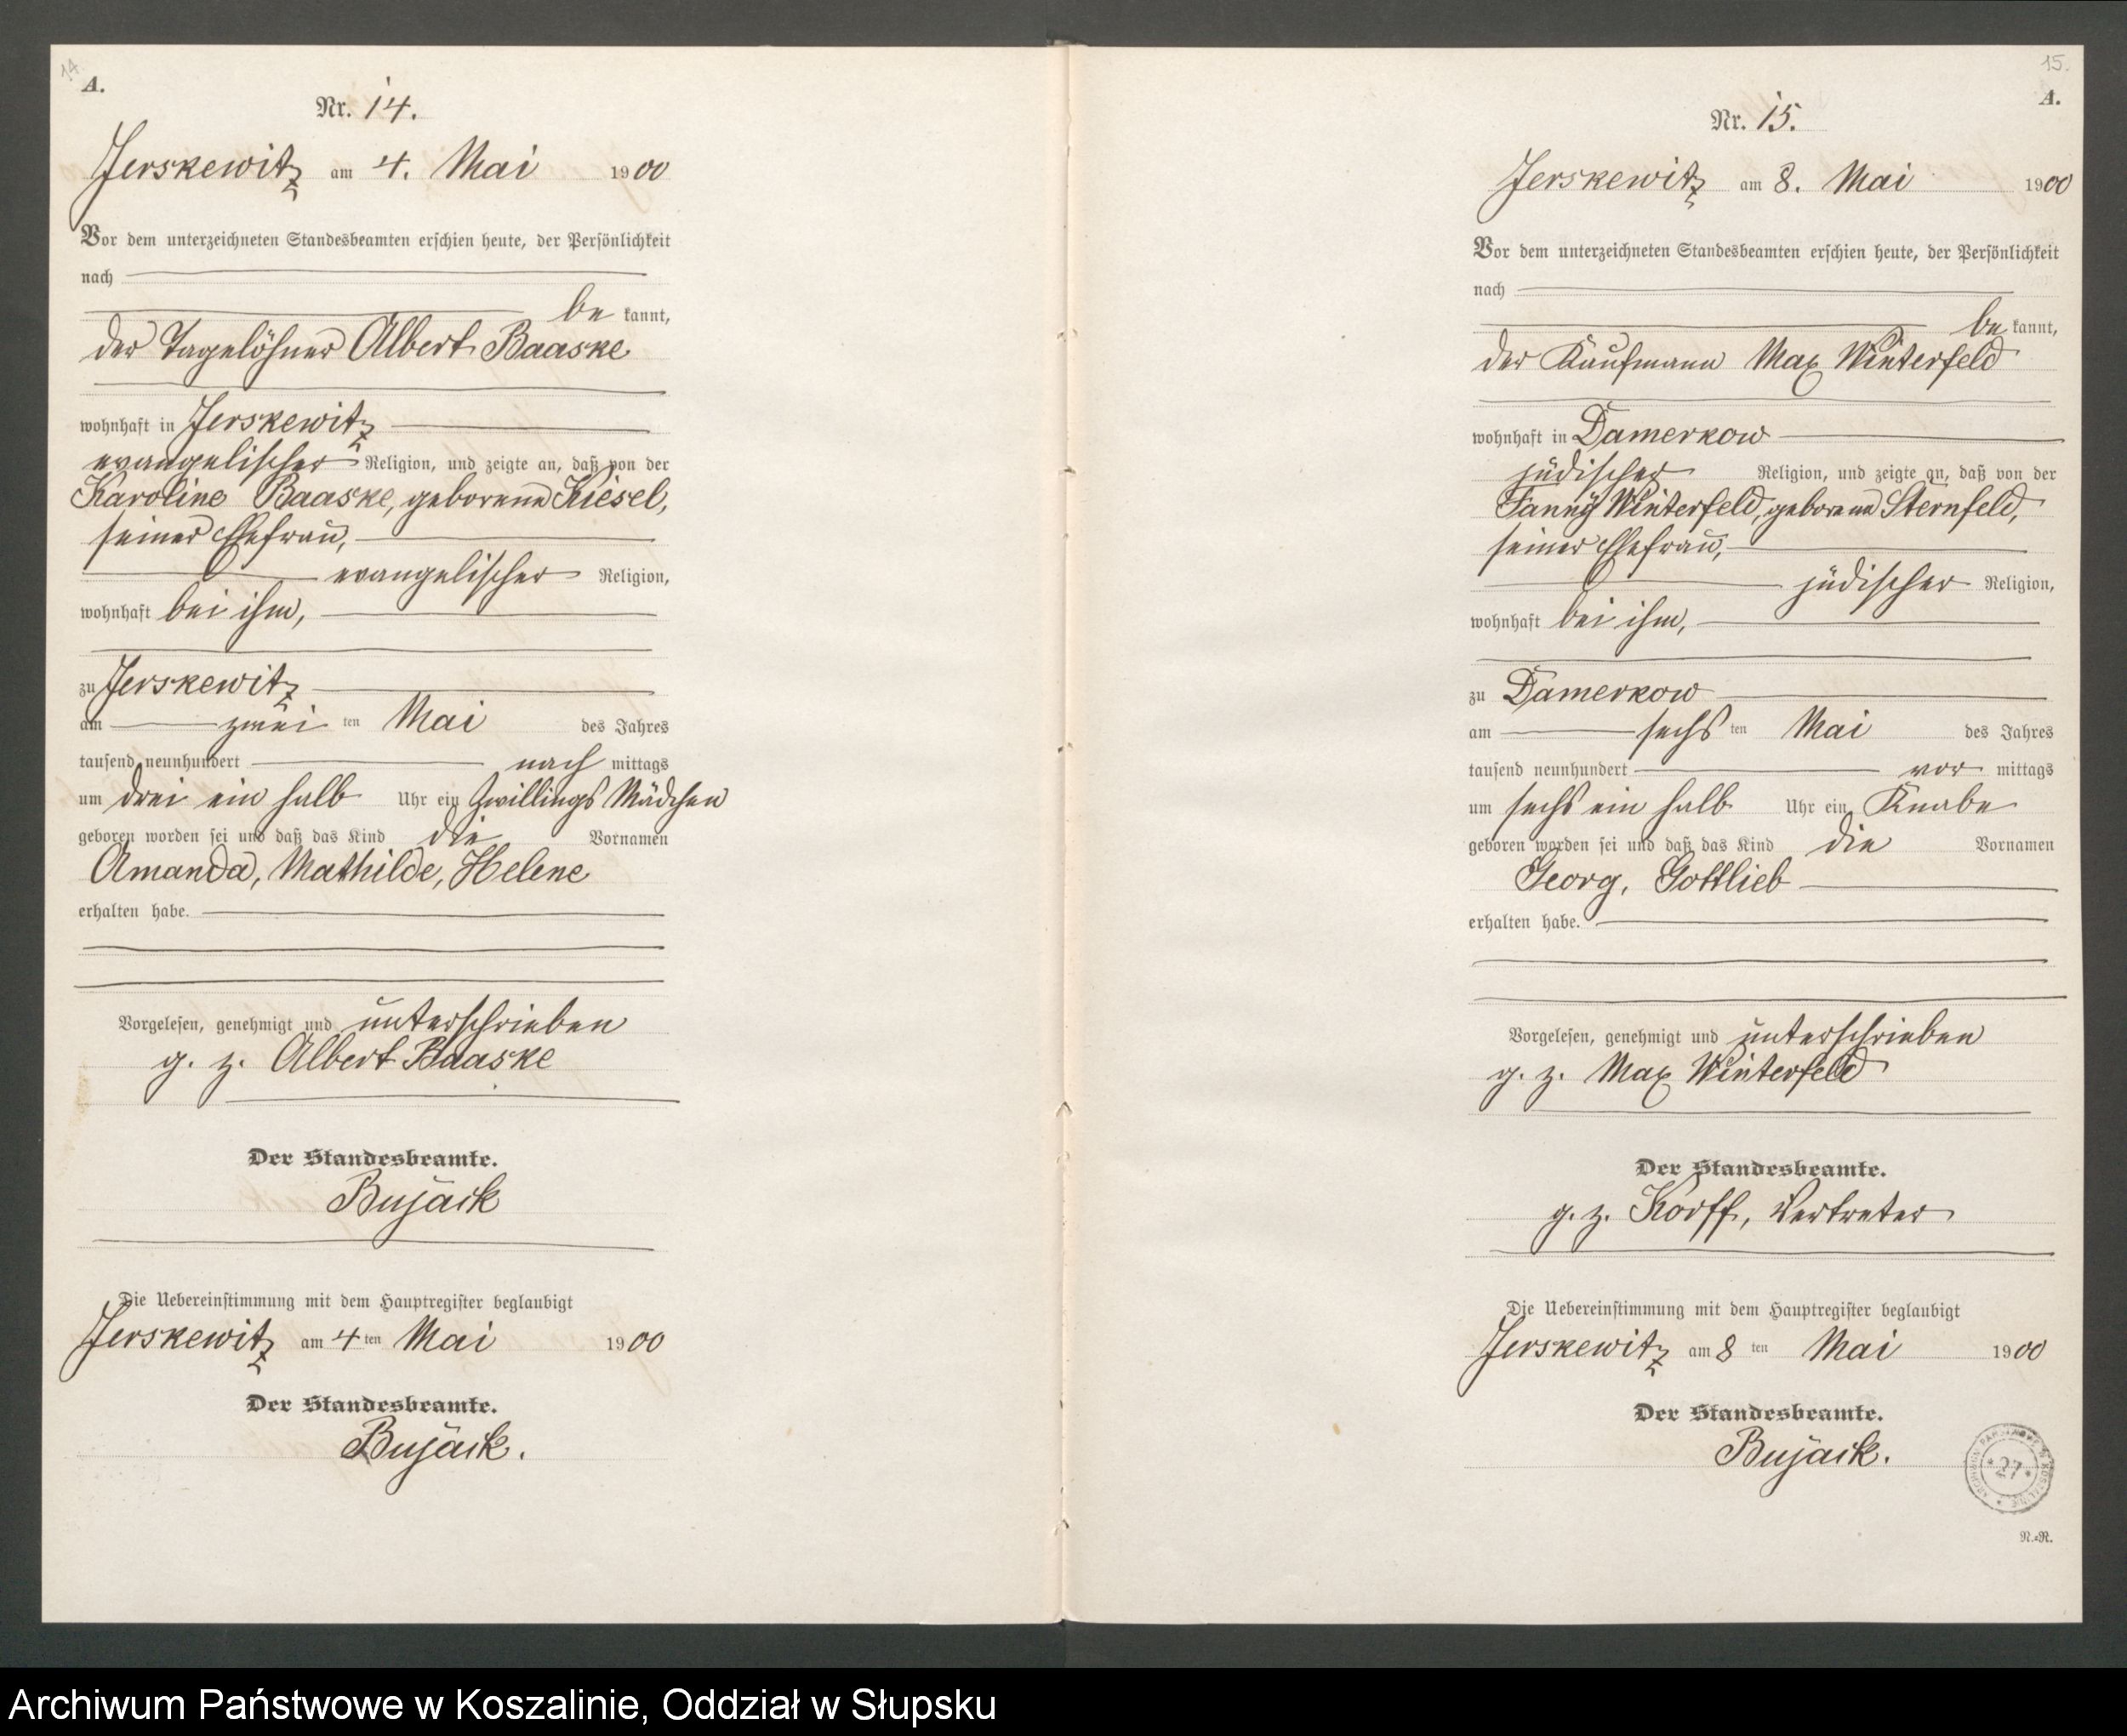 14.
A.
Nr. 14.
Jerskewitz am 4. Mai 1900
Vor dem unterzeichneten Standesbeamten erschien heute, der Persönlichkeit
nach
be kannt,
der Tagelöhner Albert Baaske
wohnhaft in Jerskewitz
evangelischer Religion, und zeigte an, daß von der
Karoline Baaske, geborene Kiesel,
seiner Ehefrau,
evangelischer Religion,
wohnhaft bei ihm,
zu Jerskewitz
am zwei ten Mai des Jahres
tausend neunhundert nach mittags
um drei ein halb Uhr ein Zwillings Mädchen
geboren worden sei und daß das Kind die Vornamen
Amanda, Mathilde, Helene
erhalten habe.
Vorgelesen, genehmigt und unterschrieben
g. z. Albert Baaske
Der Standesbeamte.
Bujack
Die Uebereinstimmung mit dem Hauptregister beglaubigt
Jerskewitz am 4 ten Mai 1900
Der Standesbeamte.
Bujack.
15.
A.
Nr. 15.
Jerskewitz am 8. Mai 1900
Vor dem unterzeichneten Standesbeamten erschien heute, der Persönlichkeit
nach
be kannt,
der Kaufmann Max Winterfeld
wohnhaft in Damerkow
jüdischer Religion, und zeigte an, daß von der
Fanny Winterfeld, geborene Sternfeld,
seiner Ehefrau,
jüdischer Religion,
wohnhaft bei ihm,
zu Damerkow
am sechs ten Mai des Jahres
tausend neunhundert vor mittags
um sechs ein halb Uhr ein Knabe
geboren worden sei und daß das Kind die Vornamen
Georg, Gottlieb
erhalten habe.
Vorgelesen, genehmigt und unterschrieben
g. z. Max Winterfeld
Der Standesbeamte.
g. z. Korff, Vertreter
Die Uebereinstimmung mit dem Hauptregister beglaubigt
Jerskewitz am 8 ten Mai 1900
Der Standesbeamte.
Bujack.
ARCHIWUM PAŃSTWOWE W KOSZALINIE
* 27 *
N.=R.
Archiwum Państwowe w Koszalinie, Oddział w Słupsku